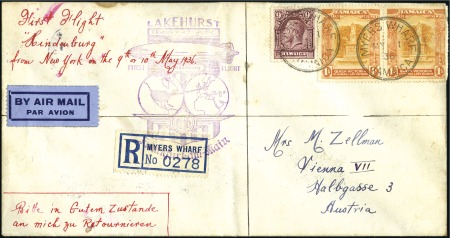 First Flight
"Hindenburg"
from New York on the 9th or 10th May 1936.
LAKEHURST
FIRST FLIGHT
JAMAICA
JAMAICA
MYERS WHARF
JAMAICA
BY AIR MAIL
PAR AVION
R MYERS WHARF
No 0278
Mrs M Zellman
Vienna VII
Halbgasse 3
Austria
Bitte in Gutem Zustande
an mich zu Retournieren